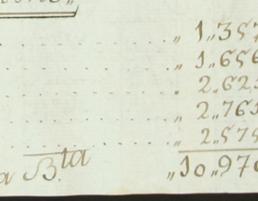 „ 1„357
„ 1„656
„ 2„623
„ 2„763
„ 2„575
a B.ta „10„97